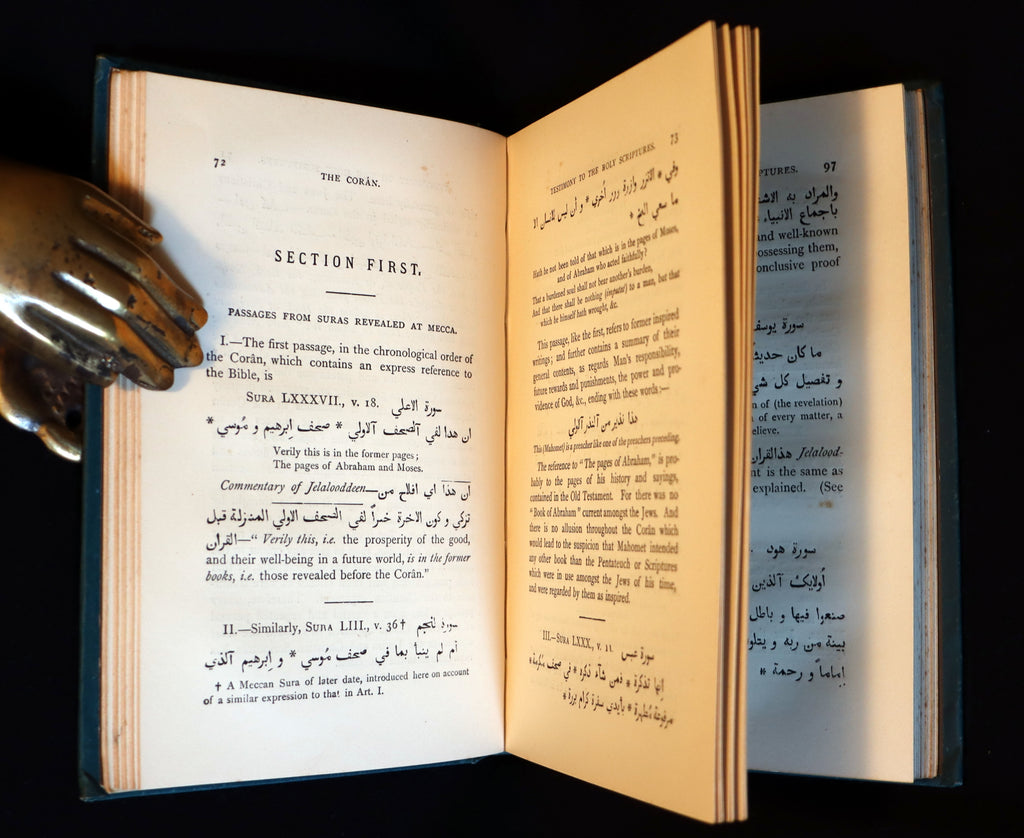 72
THE CORÂN.
SECTION FIRST.
PASSAGES FROM SURAS REVEALED AT MECCA.
I.—The first passage, in the chronological order of
the Corân, which contains an express reference to
the Bible, is
SURA LXXXVII., v. 18. سورة الاعلي
ان هدا لفي آلصحف آلاولي * صحف اِبرهيم و مُوسي *
Verily this is in the former pages;
The pages of Abraham and Moses.
Commentary of Jelalooddeen—ان هذا اي افلاح من
تزكي و كون الاخرة خيراً لفي الصحف الاولي المنزلة قبل
القرآن—“ Verily this, i.e. the prosperity of the good,
and their well-being in a future world, is in the former
books, i.e. those revealed before the Corân.”
II.—Similarly, SURA LIII., v. 36† سورة النجم
ام لم ينبأ بما في صحف مُوسي * و اِبرهيم آلذي
† A Meccan Sura of later date, introduced here on account
of a similar expression to that in Art. I.
TESTIMONY TO THE HOLY SCRIPTURES. 73
وفي * الا تزر وازرة وزر اُخري * و ان ليس للانسان الا
ما سعي الخ *
Hath he not been told of that which is in the pages of Moses,
and of Abraham who acted faithfully?
That a burdened soul shall not bear another's burden,
And that there shall be nothing (imputed) to a man, but that
which he himself hath wrought, &c.
This passage, like the first, refers to former inspired
writings; and further contains a summary of their
general contents, as regards Man's responsibility,
future rewards and punishments, the power and pro-
vidence of God, &c., ending with these words:—
هذا نذير من آلنذر آلاولي
This (Mahomet) is a preacher like one of the preachers preceding.
The reference to “The pages of Abraham,” is pro-
bably to the pages of his history and sayings,
contained in the Old Testament. For there was no
“Book of Abraham” current amongst the Jews. And
there is no allusion throughout the Corân which
would lead to the suspicion that Mahomet intended
any other book than the Pentateuch or Scriptures
which were in use amongst the Jews of his time,
and were regarded by them as inspired.
III.—SURA LXXX., v. 11. سورة عبس
اِنها تذكرة * فمن شآء ذكره * في صحف مكرمة *
مرفوعة مُطهرة * بأيدي سفرة كرام بررة *
PTURES. 97
والمراد به الاشه
باجماع الانبياء
and well-known
ossessing them,
onclusive proof
سورة يوسف
ما كان حديث
و تفصيل كل شي
n of (the revelation)
of every matter, a
elieve.
هذالقران Jelalood-
nt is the same as
explained. (See
سورة هود
اُولايك آلذين
صنعوا فيها و باطل
بينة من ربه و يتلو
اِماماً و رحمة *